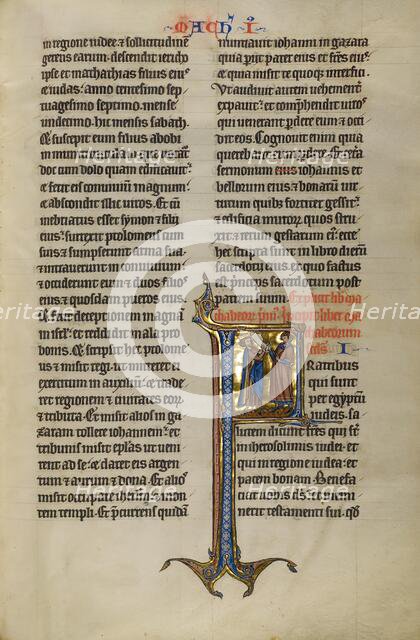 MACH I
in regione iudee. & sollicitudinē
gerens earum. descendit iericho
ipse et mathathias filius eius
& iudas. anno centesimo sep
tuagesimo septimo. mense
undecimo. hic mensis sabath.
& suscepit eum filius abobi
in
doc cum dolo quam edificavit.
& fecit eis conuiuiū magnum.
& abscondit illic uiros. Et cū
inebriatus esset symon & filij
eius: surrexit ptolomeus cum
suis & sumpserunt arma sua.
& intrauerunt in conuiuium
& occiderunt eum & duos filios
eius & quosdam pueros eius.
& fecit deceptionem magnā ī
isrl. et reddidit mala pro
bonis. & scripsit hec ptolome
us & misit regi ut mitteret ei
exercitum in auxiliū. & trade
ret regionem & ciuitates eorᷓ
& tributa. Et misit alios in ga
zaram tollere iohannem. et
tribunis misit epłas ut ueni
rent ad se. & daret eis argen
tum & aurum & dona. Et alios
misit occupare iherusalem & mon
tem templi. Et p̄currens quidā
nuntiauit iohanni in gazara
quia perijt pater eius et frēs eiꝰ.
& quia misit te quoque interfici.
Ut audiuit autem uehement̄
expauit: et comprehendit uiros
qui uenerant perdere eum et occi
dit eos. Cognouit enim quia
querebat
sermonum eius iohannis et
bellorum eius & bonarū uir
tutum quibus fortiter gessit.
& edificia murorum quos struxit
et rerum gestarum eiꝰ: ecce
hec scripta sunt in libro dierū
sacerdotij eius. ex quo factus
Explicit lib
chabeorᷓ pmꝰ. Incipit liber
chabeorum
dꝰs. I
FRatribus
qui sunt
per egyptū
iudeis. sa
lutem dicunt frēs qui st̄
in iherosolimis iudei. et
qui in regione iudea. et
pacem bonam. Benefa
ciat uobis deus et memi
nerit testamenti sui. qd̄
Heritage
Images
Heritage
Images
Heritage
Images